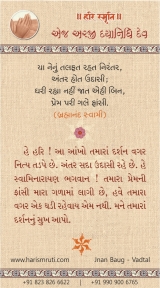 ॥ હરિ સ્મૃતિ ॥
એજ અરજી દયાનિધિ દેવ
યા નેનું તલફત રહત નિરંતર,
અંતર હોત ઉદાસી;
ઘરી રહ્યા નહીં જાત એહી બિન,
પ્રેમ પરી ગલે ફાંસી.
(બ્રહ્માનંદ સ્વામી)
હે હરિ ! આ આંખો તમારાં દર્શન વગર
નિત્ય તડપે છે. અંતર સદા ઉદાસી રહે છે. હે
સ્વામિનારાયણ ભગવાન ! તમારા પ્રેમની
ફાંસી મારા ગળામાં લાગી છે, હવે તમારા
વગર એક ઘડી રહેવાય એમ નથી. મને તમારાં
દર્શનનું સુખ આપો.
www.harismruti.com
Jnan Baug - Vadtal
+91 823 826 6622
+91 990 900 6765